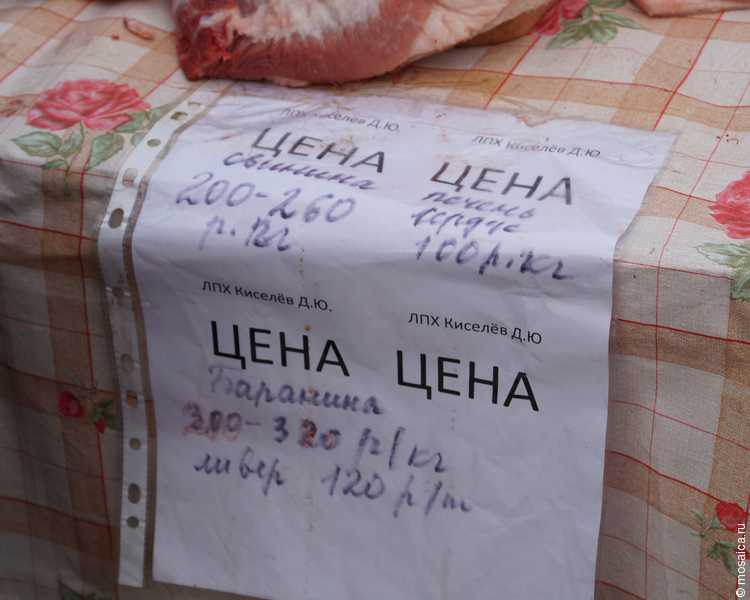 ЛПХ Киселёв Д.Ю.
ЦЕНА
свинина
200-260
р.кг
ЛПХ Киселёв Д.Ю
ЦЕНА
печень
сердце
160 р.кг
ЛПХ Киселёв Д.Ю.
ЦЕНА
Баранина
300-320 р/кг
ливер 120 р/кг
ЛПХ Киселёв Д.Ю
ЦЕНА
© mosaica.ru